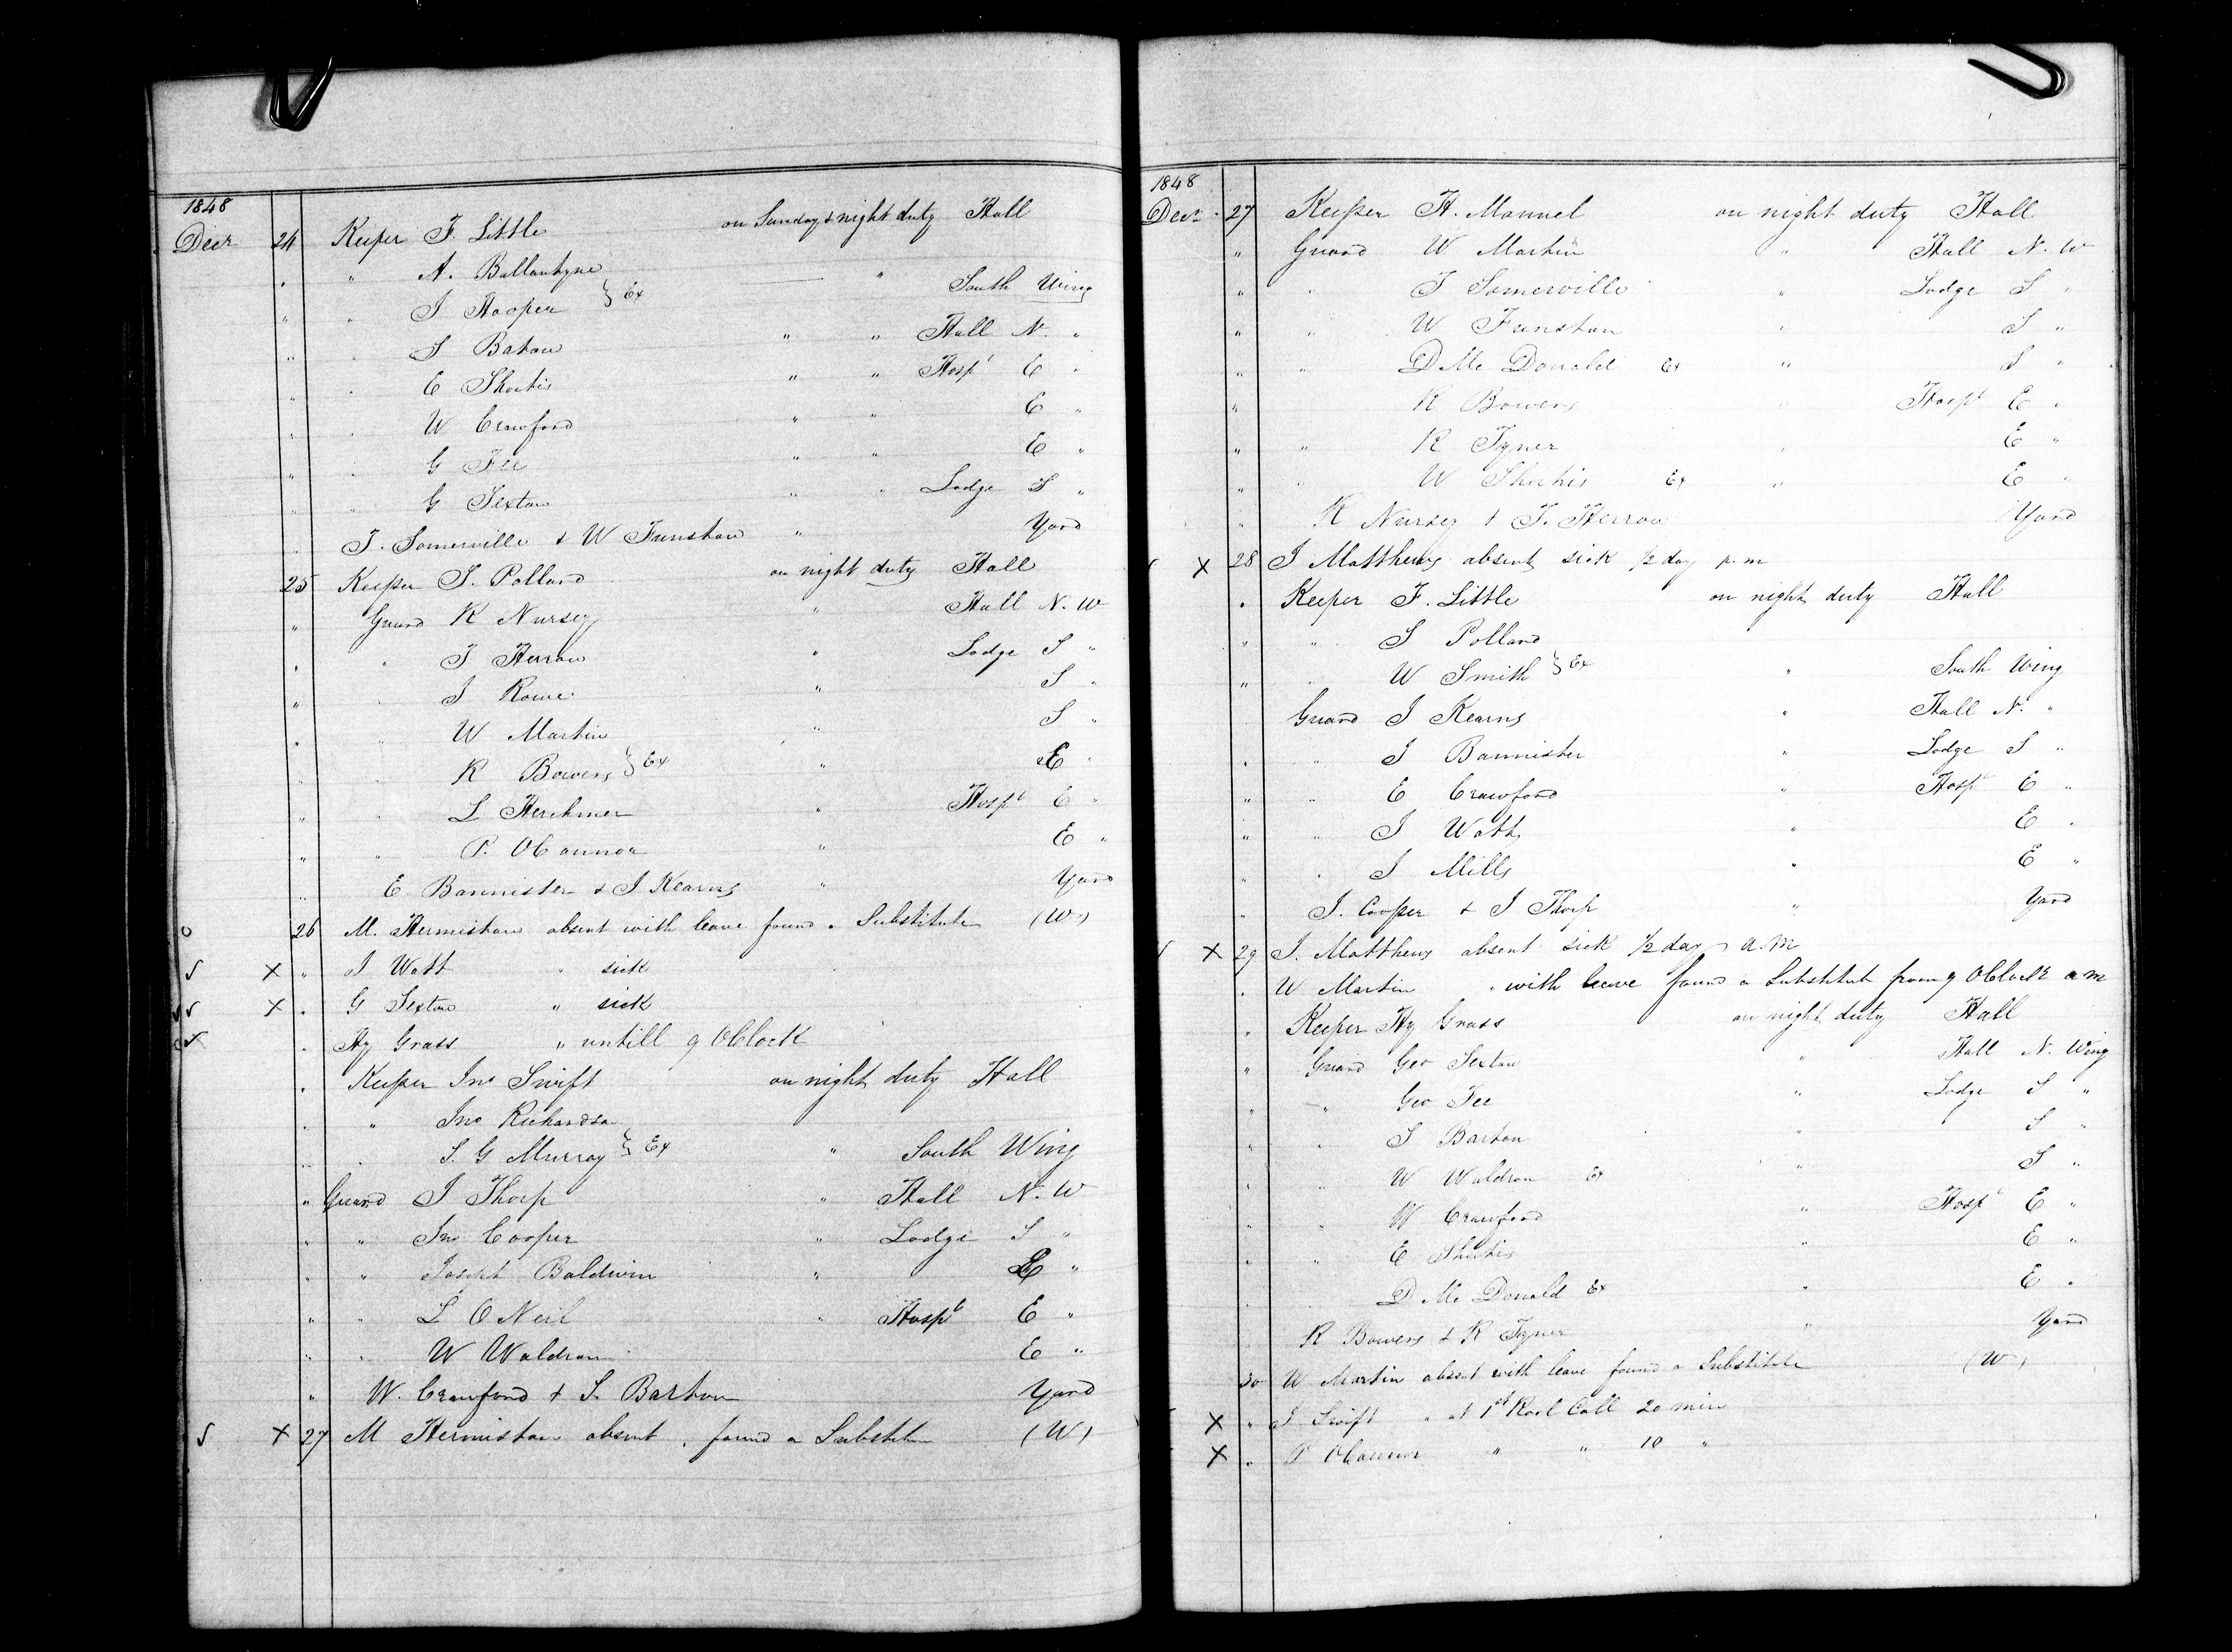 1848
Decr 24 Keeper F. Little on Sunday & night duty Hall
" " A. Ballantyne
" " J Hooper } Ex — " South Wing
" " S Baton " " Hall N. "
" " E Sheehis " " Hospl E "
" " W Crawford " " E "
" " G Fee " " E "
" " G Sexton " " Lodge S "
" T. Somerville & W Funston " Yard
25 Keeper S. Pollard on night duty Hall
" Guard R Nursey " Hall N. W
" " T Herron " Lodge S "
" " J Rowe " S "
" " W Martin " S "
" " R Bowers } Ex " E "
" " L Herchmer " Hospl E "
" " P. OConnor " E "
" E. Bannister & J Kearns " Yard
26 M. Hermiston absent with leave found a Substitute (W)
X " J Watt " sick
X " G Sexton " sick
" Hy Grass " untill 9 OClock
" Keeper Jno Swift on night duty Hall
" " Jno Richardson
" " S. G Murray } Ex " South Wing
" Guard J Thorp " Hall N. W
" " Jno Cooper " Lodge S "
" " Joseph Baldwin " E "
" " L O Neil " Hospl E "
" " W Waldron " E "
" W. Crawford & S. Barton Yard
X 27 M Hermiston absent " found a Substitu (W)
1848
Decr 27 Keeper H. Mannel on night duty Hall
" Guard W Martin " Hall N. W
" " T Somerville " Lodge S "
" " W Funston " S "
" " D Mc Donald Ex " S "
" R Bowers " Hospl E "
" " R Tyner " E "
" " W Sheehis Ex " E "
" R Nursey & T. Herron Yard
X 28 J Matthews absent sick 1/2 day p.m
" Keeper F. Little on night duty Hall
" " S Pollard
" " W Smith } Ex " South Wing
Guard J Kearns " Hall N. "
" " J Bannister " Lodge S "
" " E Crawford " Hospl E "
" " J Watt " E "
" " J Mills " E "
" J. Cooper & J Thorp " Yard
X 29 J. Matthews absent sick 1/2 day a.m
" W Martin " with leave found a Substitute from 9 OClock a m
" Keeper Hy Grass on night duty Hall
" Guard Geo Sexton " Hall N. Wing
" " Geo Fee " Lodge S "
" " S Barton " S "
" " W Waldron Ex " S "
" " W Crawford " Hospl E "
" " E Sheehis " E "
" " D Mc Donald Ex " E "
" R Bowers & R Tyner " Yard
30 W Martin absent with leave found a Substitute (W)
X " J Swift " at 1st Rool Call 20 min
X " P OConnor " " 10 "